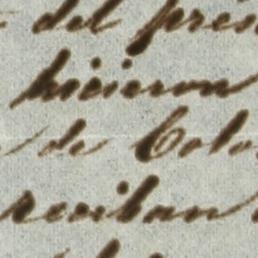 del pres
hicieron
de Colo
reciban